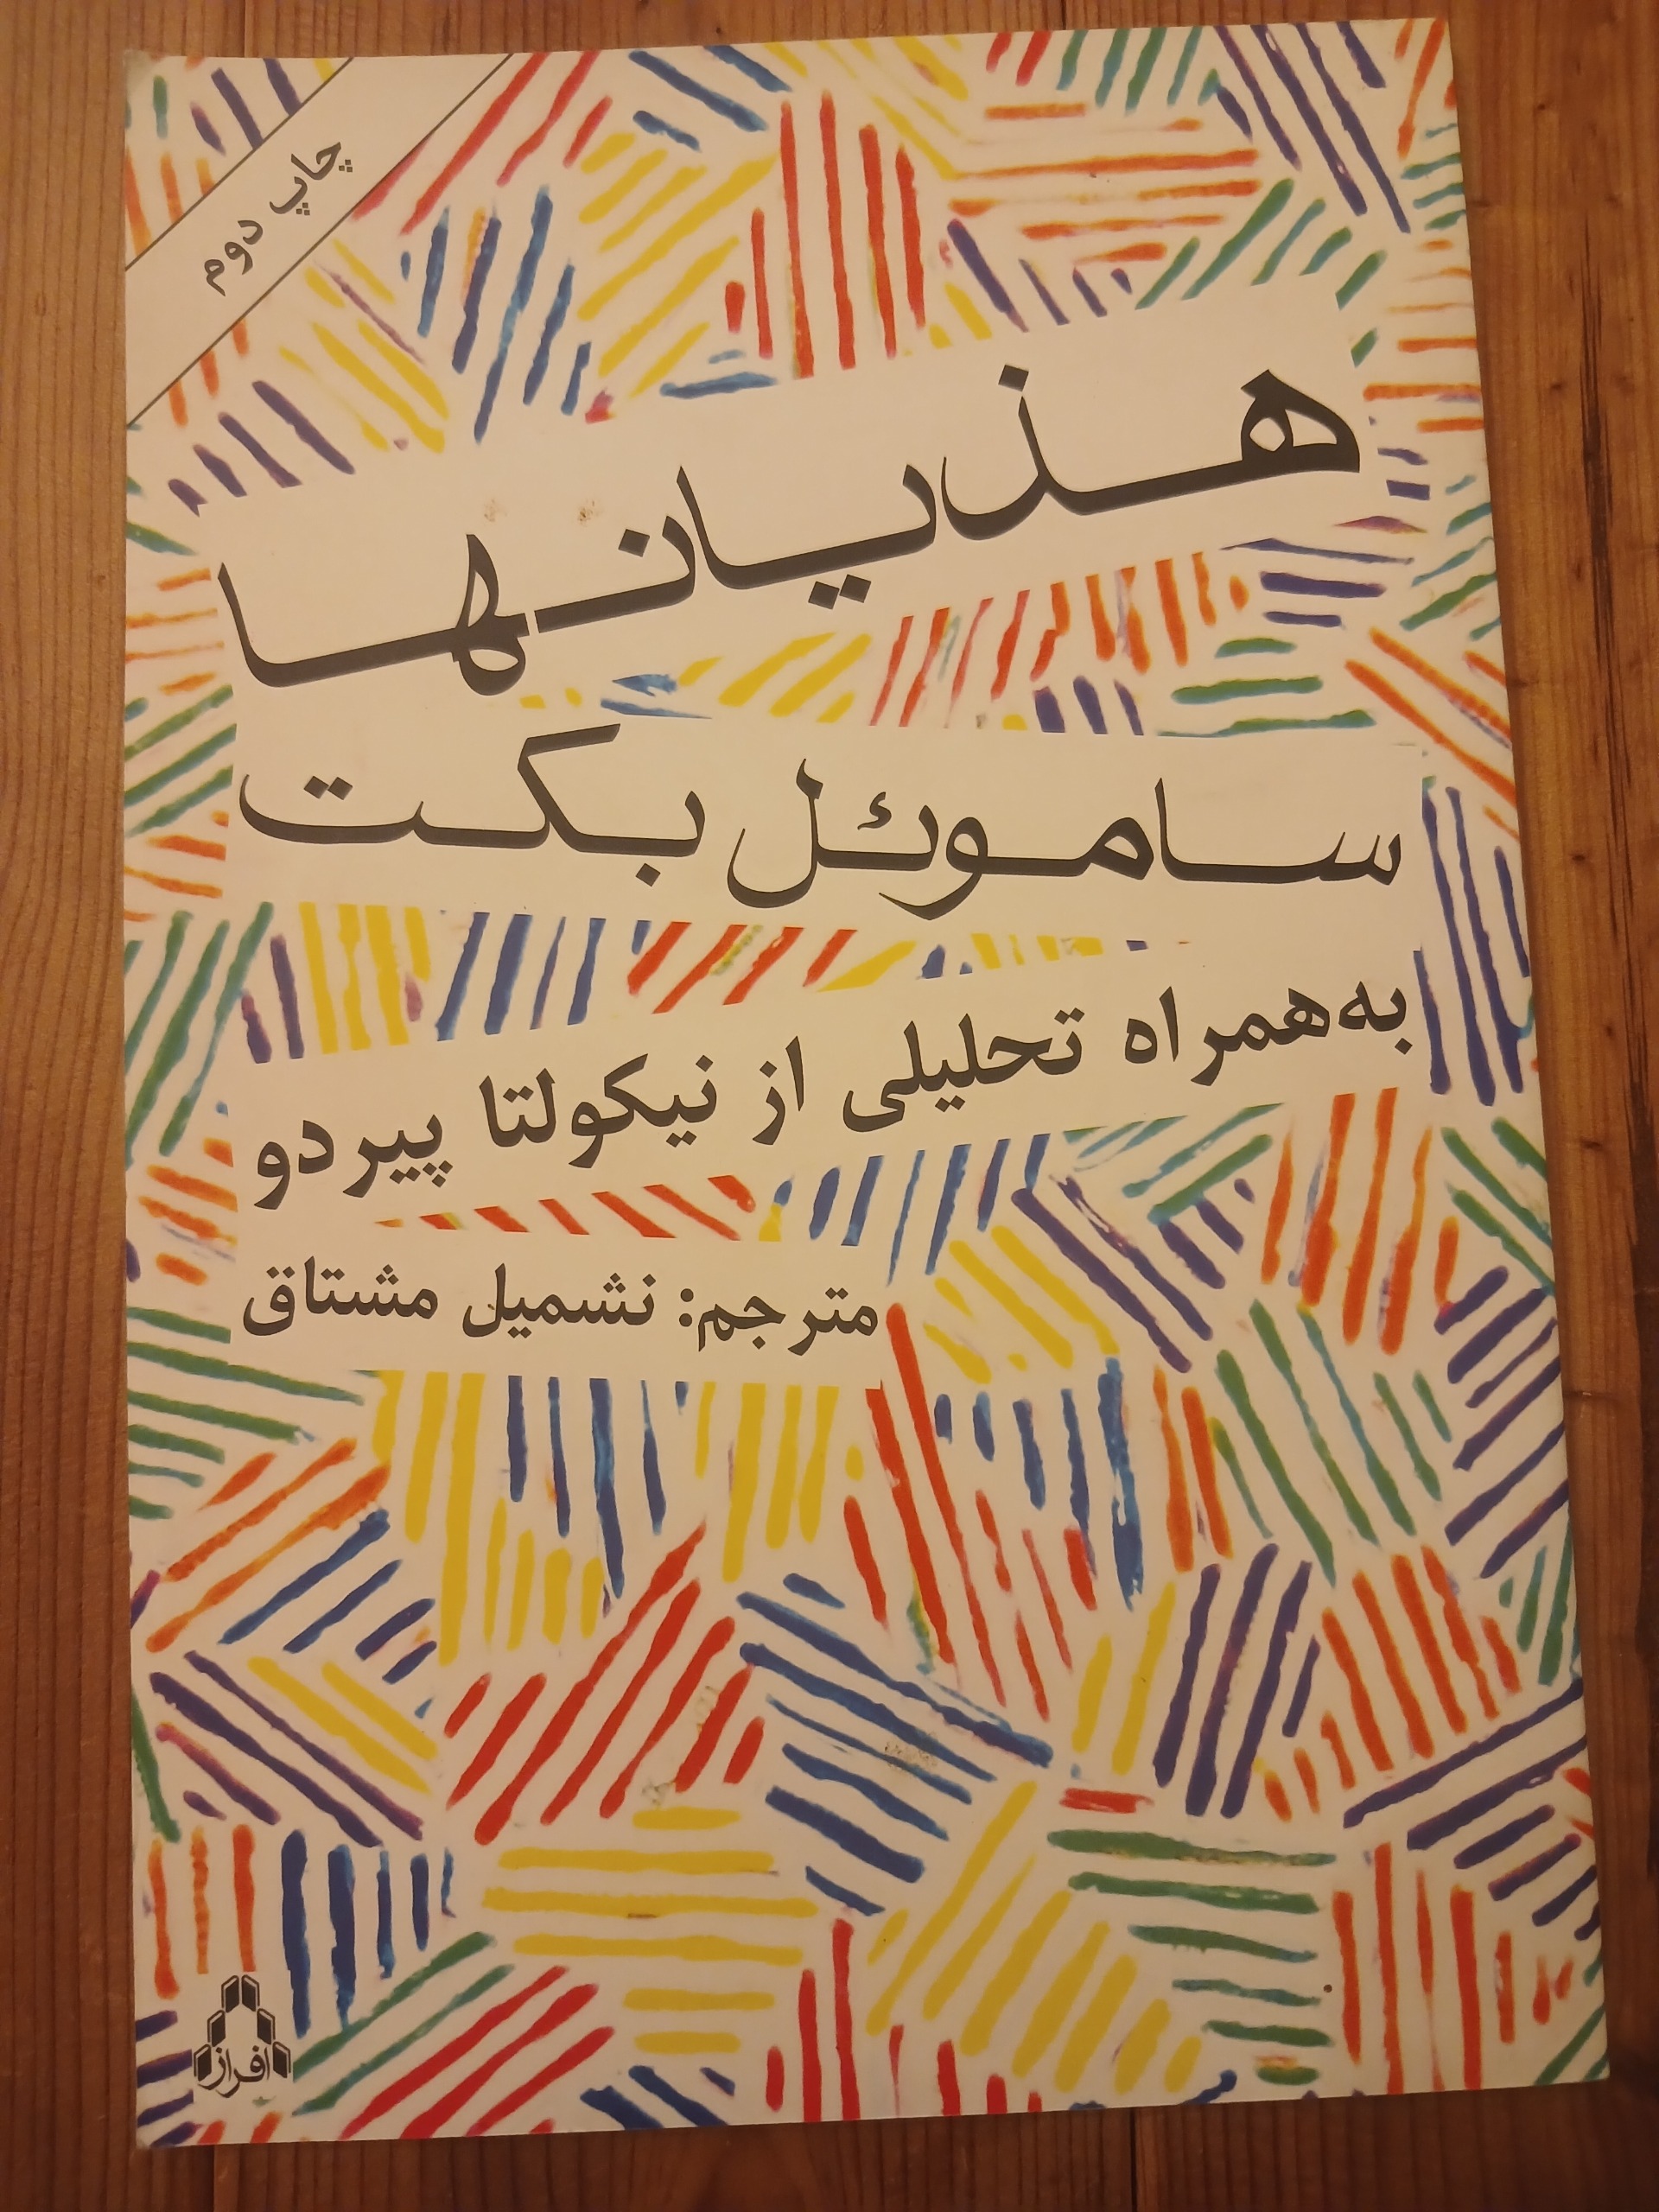 چاپ دوم
هذیانها
ساموئل بکت
به‌همراه تحلیلی از نیکولتا پیردو
مترجم: نشمیل مشتاق
افراز